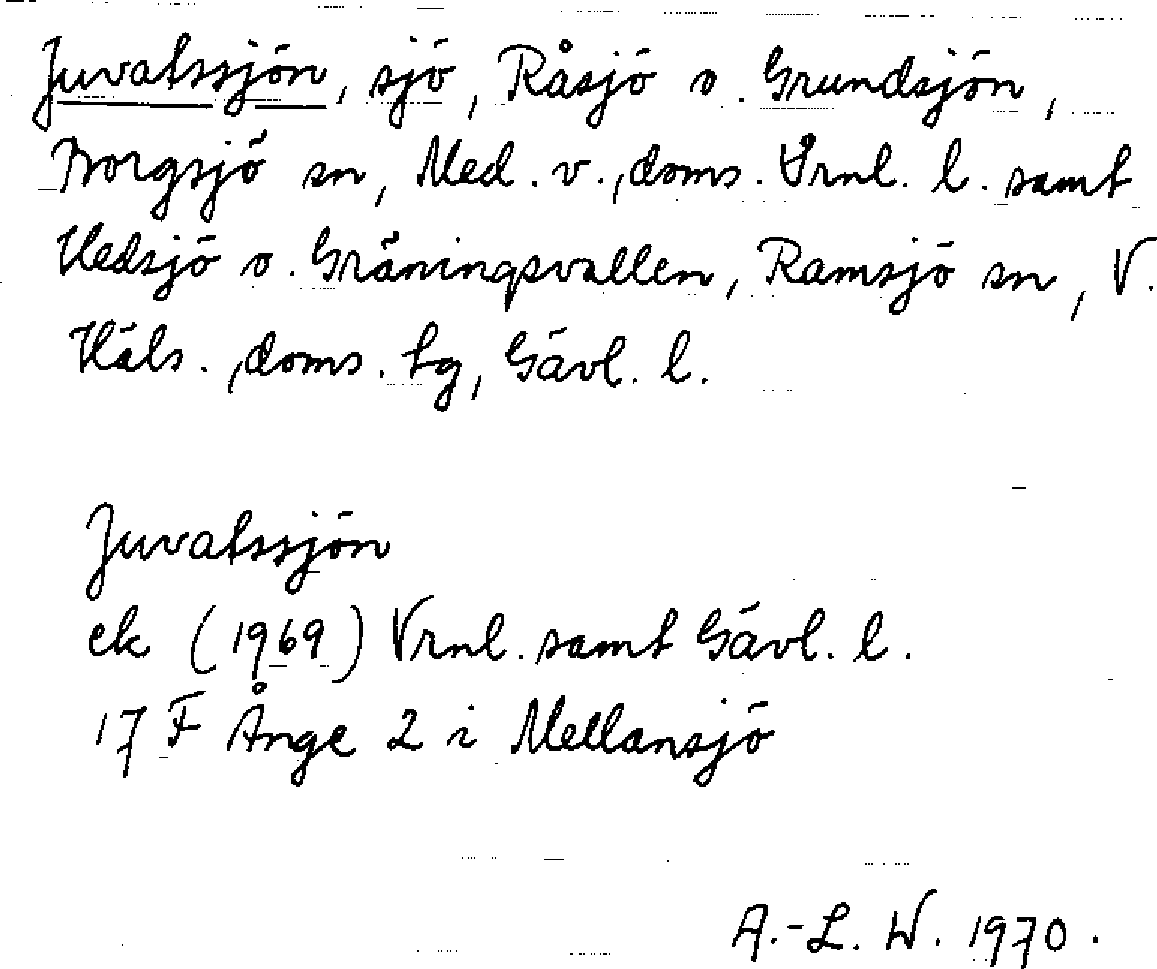 Juvatssjön, sjö, Råsjö o. Grundsjön,
Borgsjö sn, Med. v., doms. Vrnl. l. samt
Hedsjö o. Gräningsvallen, Ramsjö sn, V.
Häls., doms. tg, Gävl. l.
Juvatssjön
ek (1969) Vrnl. samt Gävl. l.
17 F Ånge 2 i Mellansjö
A.-L. W. 1970.